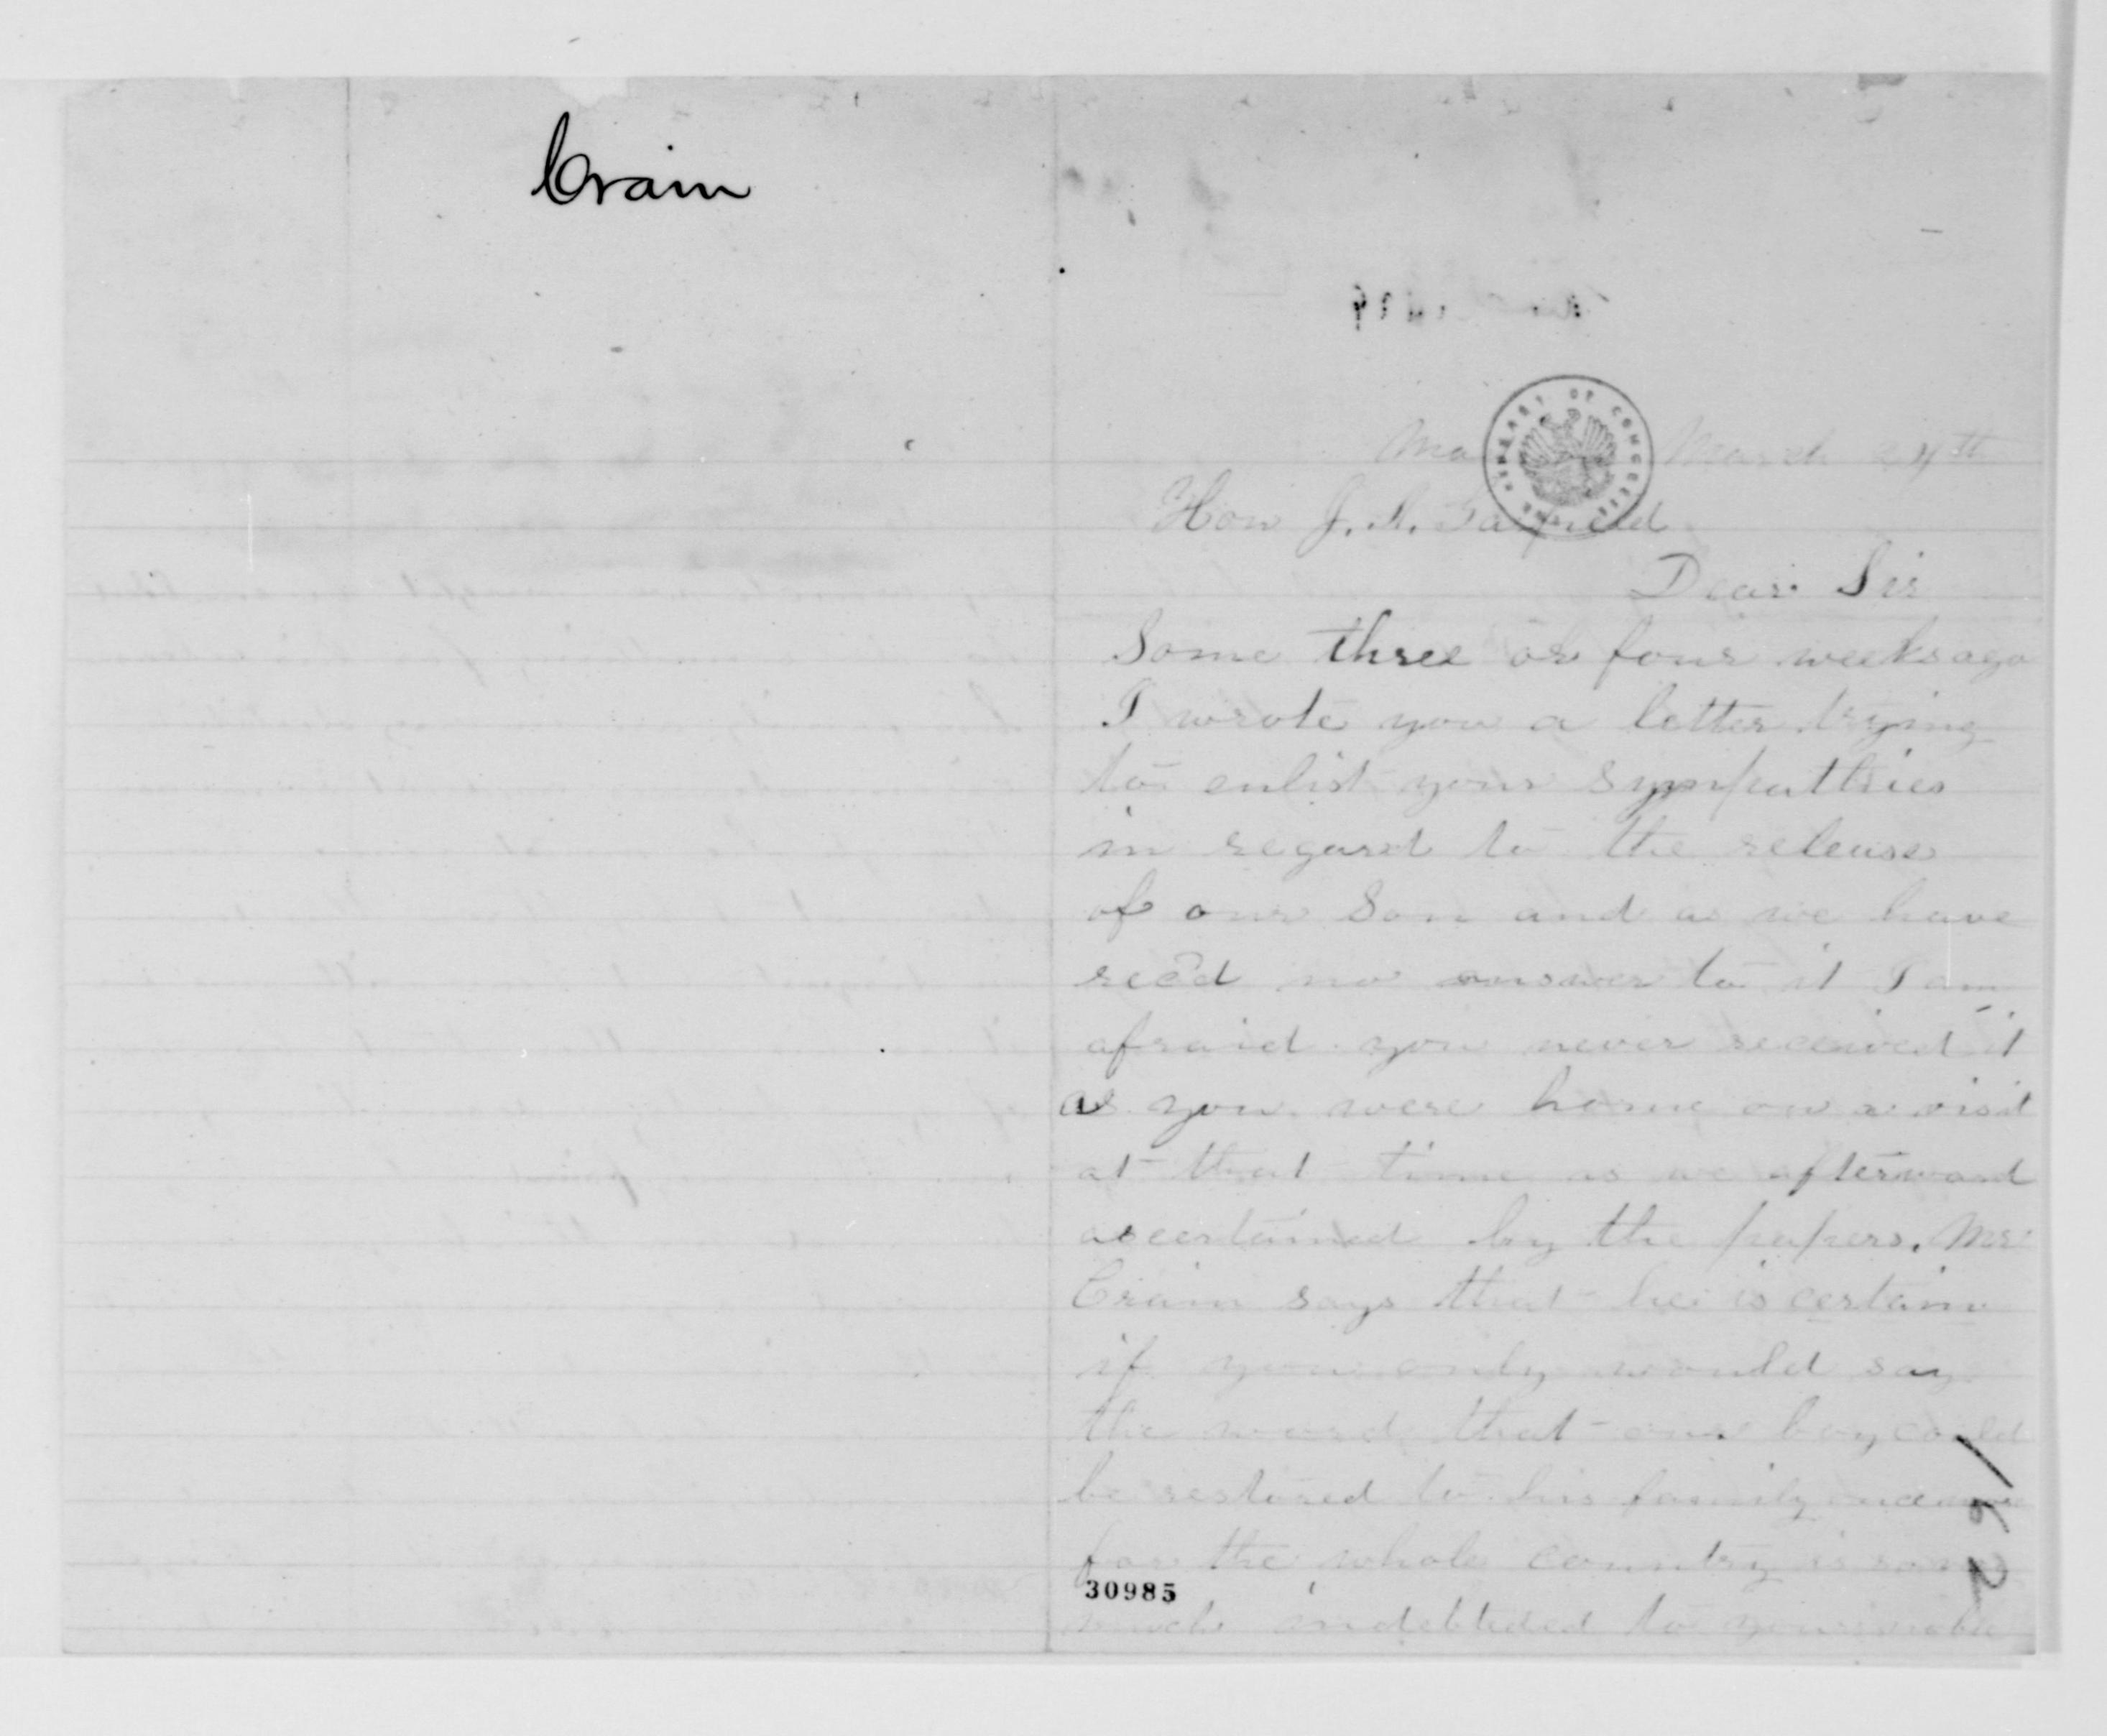 Crain
LIBRARY OF CONGRESS
March 24th
Hon J. A. Garfield
Dear Sir
Some three or four weeks ago
I wrote you a letter trying
to enlist your sympathies
in regard to the release
of our Son and as we have
rec'd no answer to it I am
afraid you never received it
as you were home on a visit
at that time as we afterward
ascertained by the papers. Mr
Crain says that he is certain
if you only would say
the word that our boy could
be restored to his family once more
for the whole country is so
30985
much indebteded to your noble
162